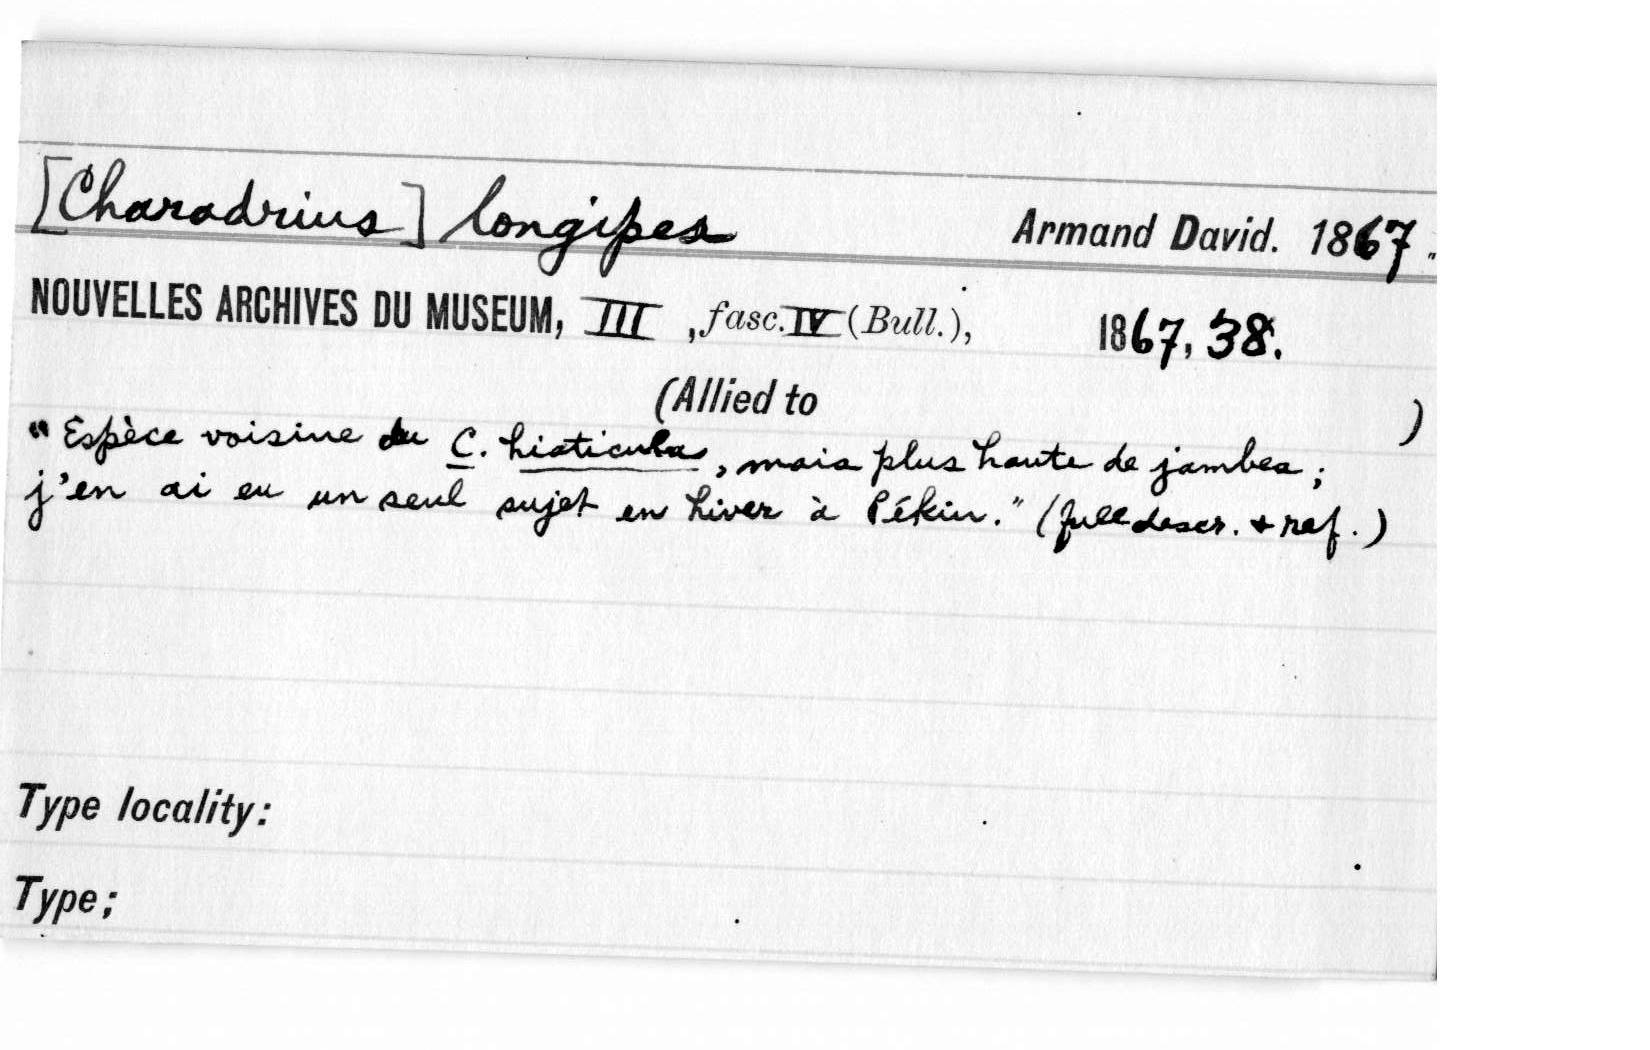 [Charadrius] longipes Armand David. 1867.
NOUVELLES ARCHIVES DU MUSEUM, III, fasc. IV (Bull.), 1867, 38.
(Allied to )
"Espèce voisine du C. hiaticula, mais plus haute de jambes;
j'en ai eu un seul sujet en hiver à Pékin." (full descr. + ref.)
Type locality:
Type;